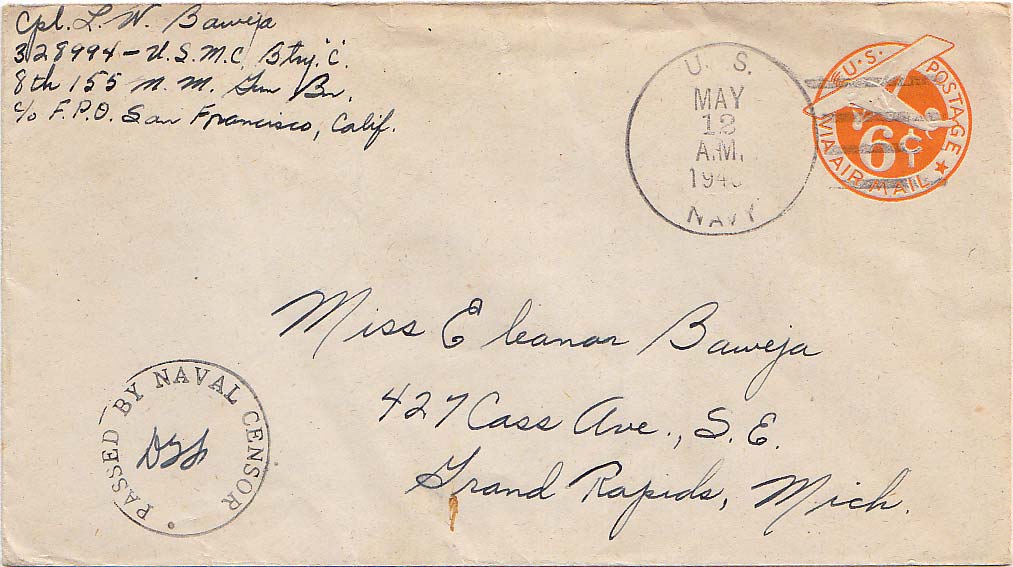 Cpl. L. W. Baweja
328994 - U.S.M.C. Btry. "C".
8th 155 M.M. Gun Bn.
c/o F.P.O. San Francisco, Calif.
U. S.
MAY
12
A.M.
NAVY
U.S. POSTAGE
6¢
VIA AIR MAIL
Miss Eleanor Baweja
427 Cass Ave., S.E.
Grand Rapids, Mich.
PASSED BY NAVAL CENSOR